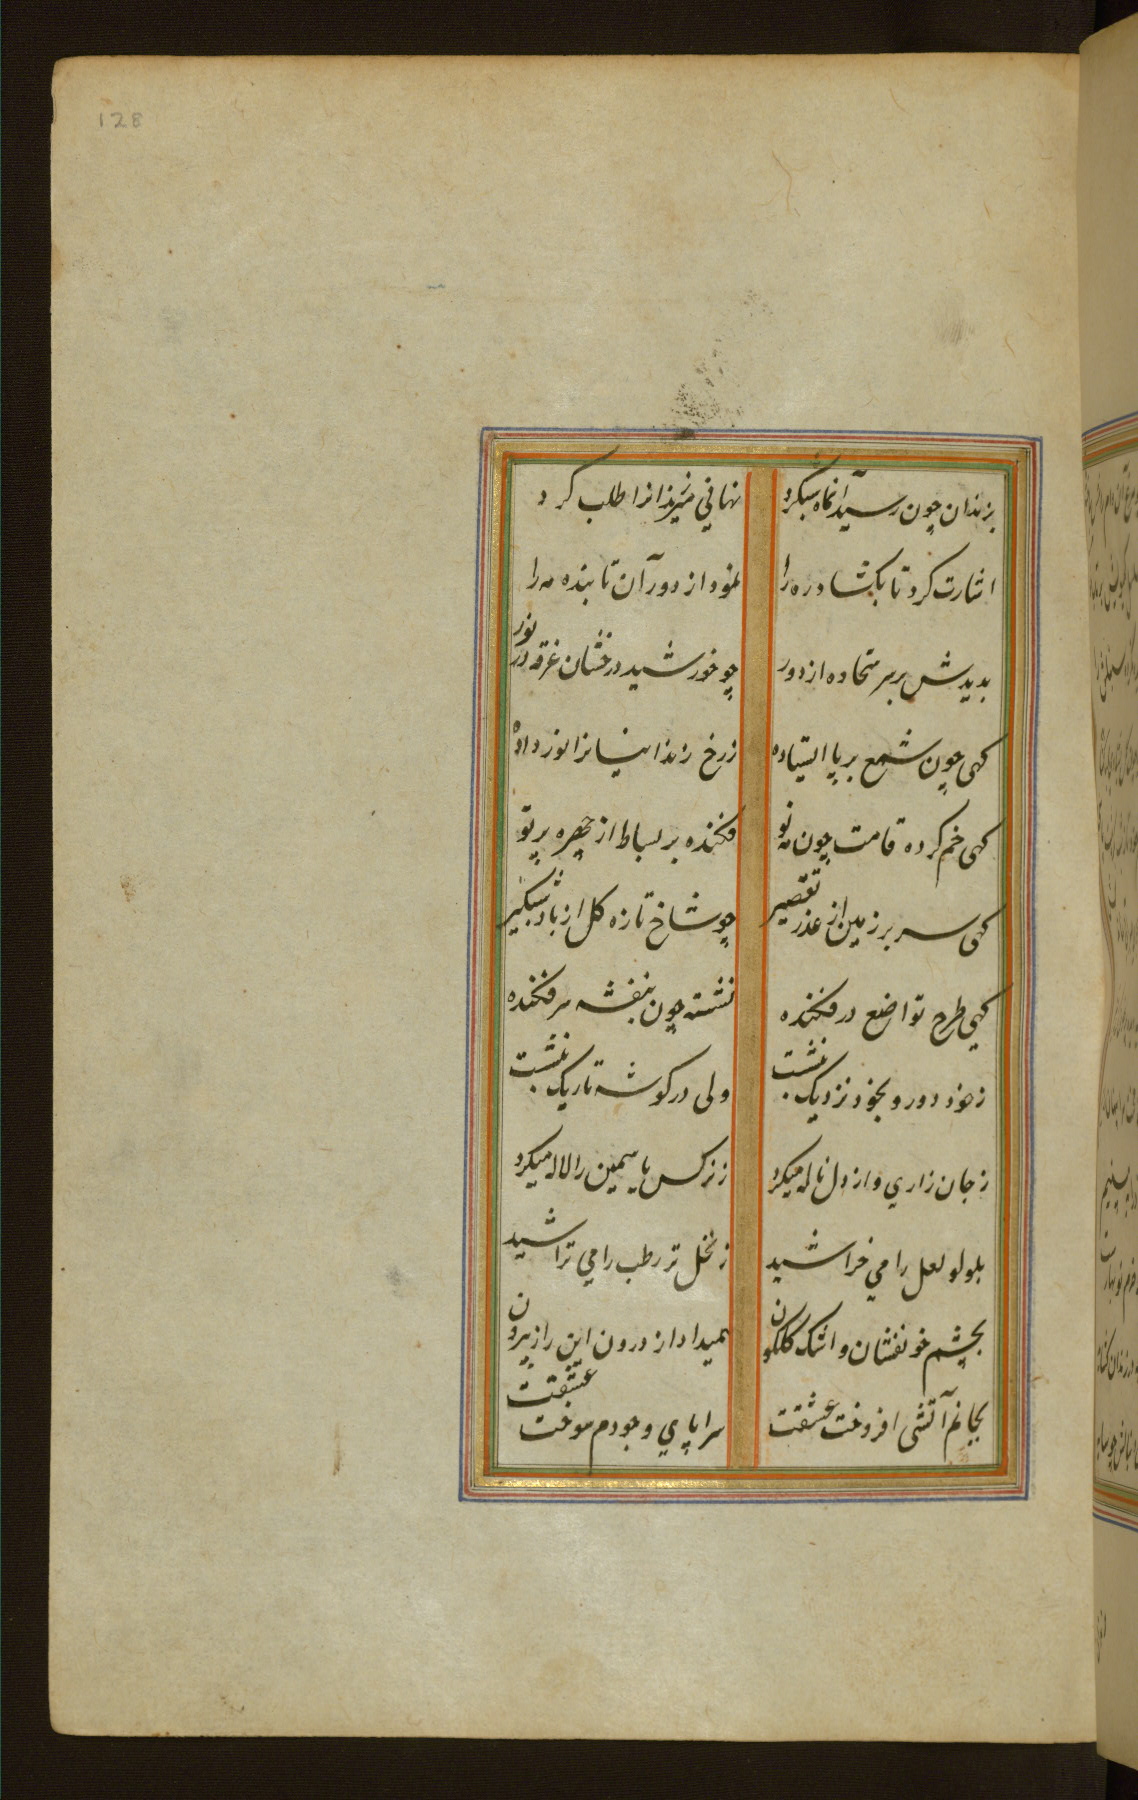 128
بزندان چون رسید آنماه شبگرد نهانی میر زندانرا طلب کرد
اشارت کرد تا بکشاد در را نمود از دور آن تابنده مه را
بدیدش بر سر سجاده از دور چو خورشید درخشان غرقه در نور
کهی چون شمع بر پا ایستاده ز رخ زندانیانرا نور داده
کهی خم کرده قامت چون مه نو فکنده بر بساط از چهره پرتو
کهی سر بر زمین از عذر تقصیر چو شاخ تازه کل از باد شبگیر
کهی طرح تواضع در فکنده نشسته چون بنفشه سر فکنده
ز خود دور و بخود نزدیک بنشست ولی در کوشه تاریک بنشست
ز جان زاری و از دل ناله میکرد ز نرکس یاسمین را لاله میکرد
بلولو لعل را می خراشید ز نخل تر رطب را می تراشید
بچشم خونفشان و اشک کلکون همیداد از درون این راز بیرون
بجانم آتشی افروخت عشقت سراپای وجودم سوخت عشقت